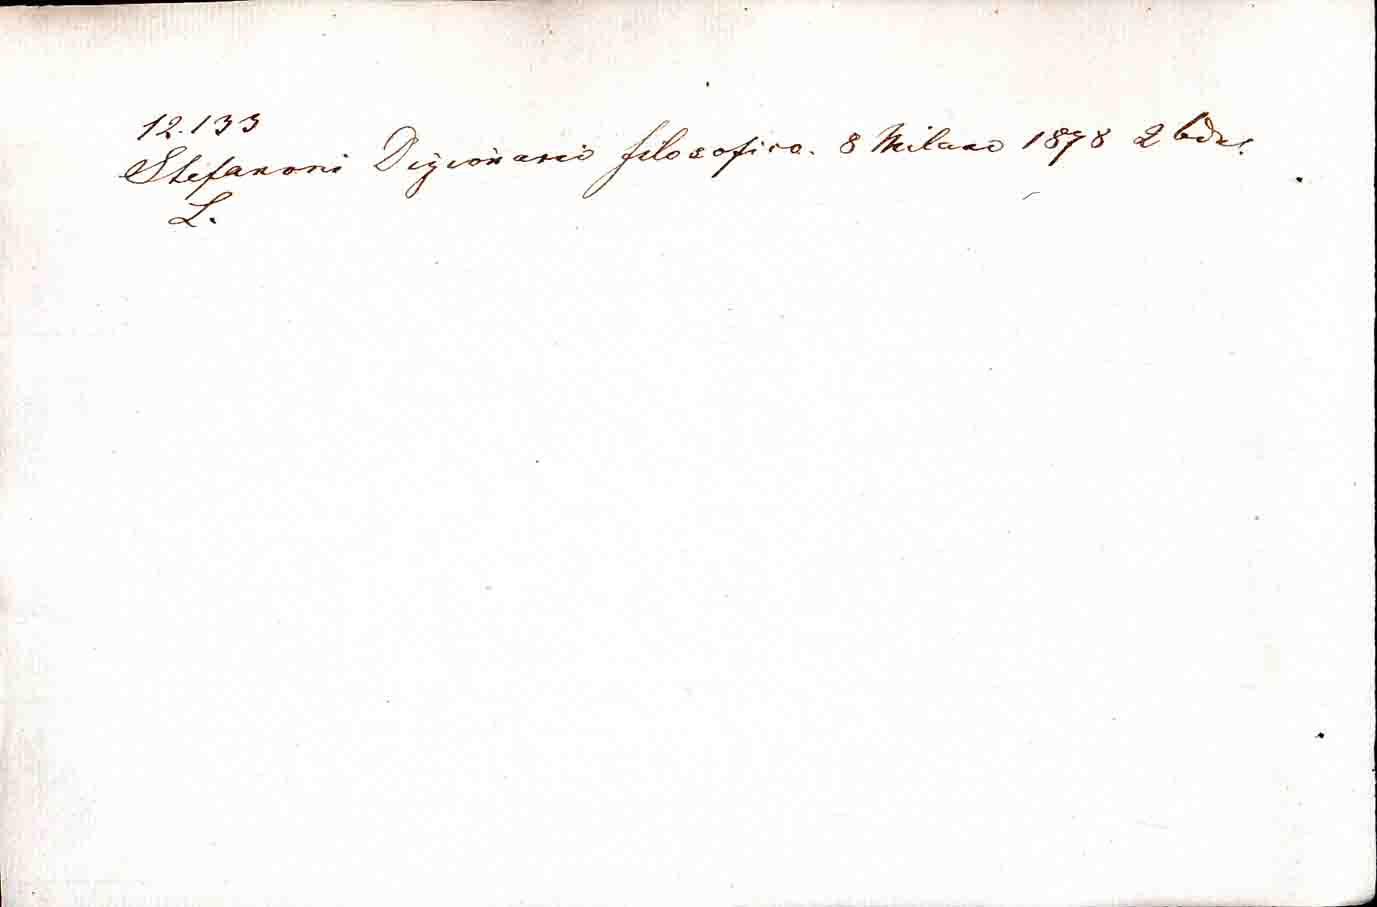 12.133
Stefanoni Dizionario filosofico. 8 Milano 1878 2 bde.
L.